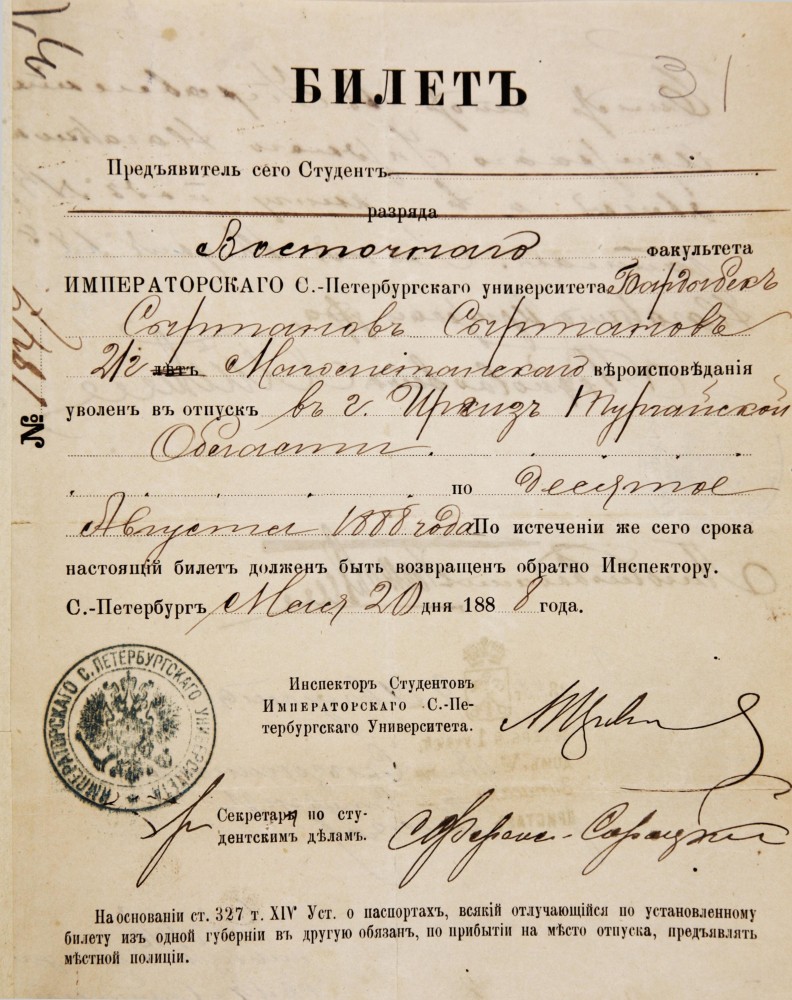 БИЛЕТЪ
Предъявитель сего Студентъ
разряда
Восточнаго факультета
ИМПЕРАТОРСКАГО С.-Петербургскаго университета Бардыбекъ
Сыртановъ Сыртановъ
212 лѣтъ Магометанскаго вѣроисповѣданія
уволенъ въ отпускъ въ г. Иргизъ Тургайской
Области.
по десятое
Августа 1888 года По истеченіи же сего срока
настоящій билетъ долженъ быть возвращенъ обратно Инспектору.
С.-Петербургъ Мая 20 дня 1888 года.
№
Инспекторъ Студентовъ
ИМПЕРАТОРСКАГО С.-Пе-
тербургскаго Университета.
ИМПЕРАТОРСКАГО С. ПЕТЕРБУРГСКАГО УНИВЕРСИТЕТА
Секретарь по сту-
дентскимъ дѣламъ.
На основаніи ст. 327 т. XIV Уст. о паспортахъ, всякій отлучающійся по установленному
билету изъ одной губерніи въ другую обязанъ, по прибытіи на мѣсто отпуска, предъявлять
мѣстной полиціи.